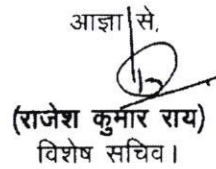 आज्ञा से,
(राजेश कुमार राय)
विशेष सचिव।